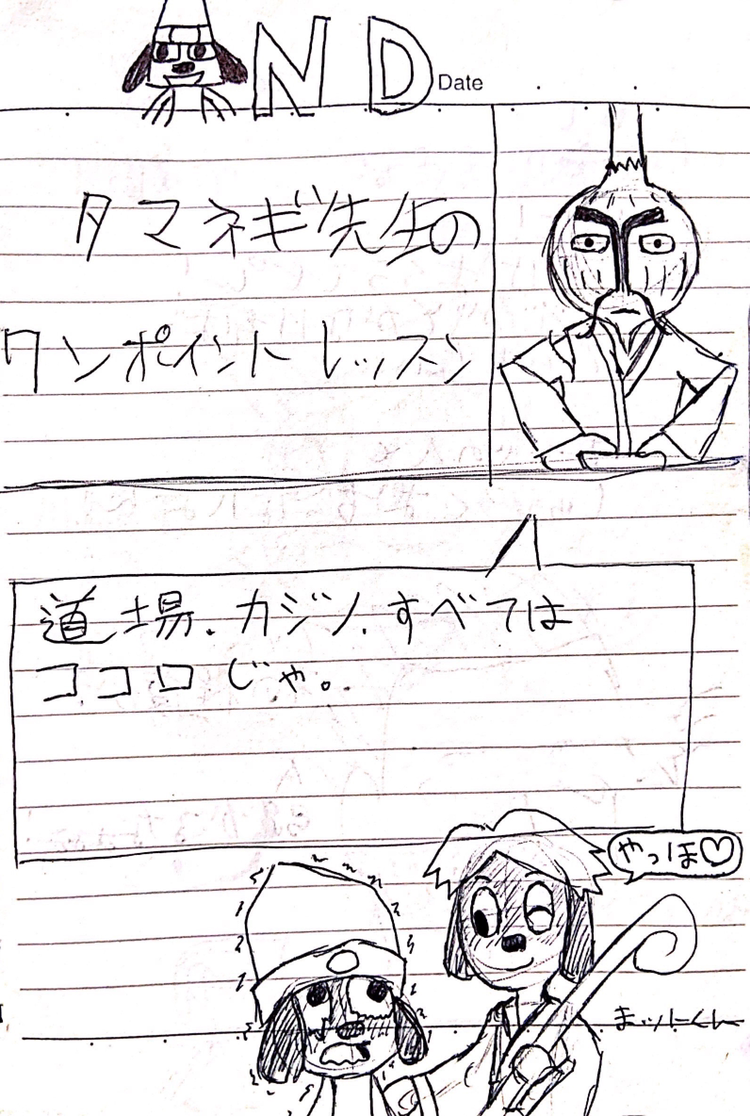 AND
Date
タマネギ先生の
ワンポイントレッスン
道場.カジノ.すべては
ココロじゃ。
やっほ♡